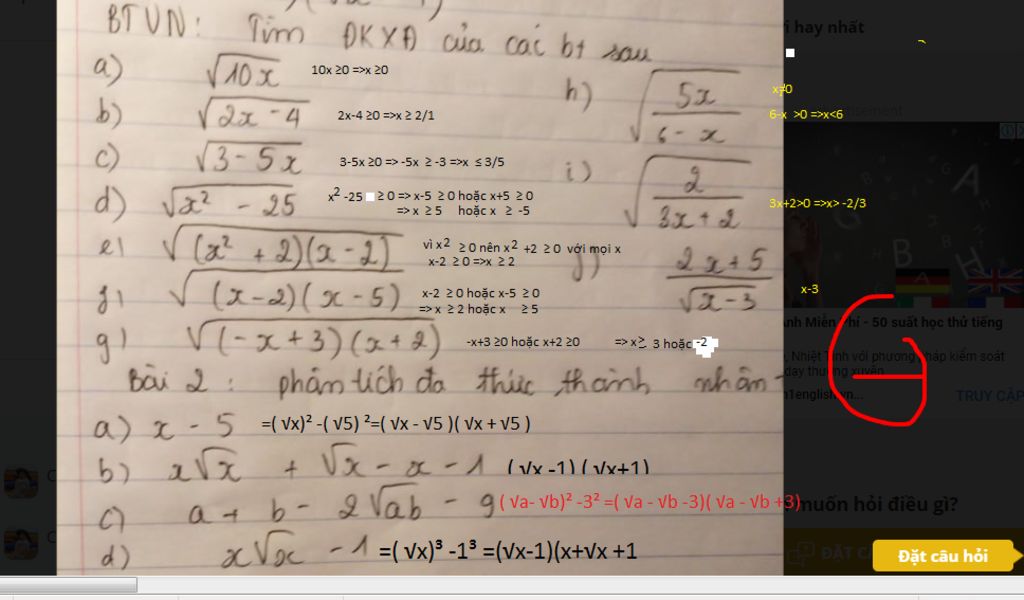 BTVN: Tìm ĐKXĐ của các bt sau
a) √10x 10x ≥0 =>x ≥0
b) √2x - 4 2x-4 ≥0 =>x ≥ 2/1
c) √3 - 5x 3-5x ≥0 => -5x ≥ -3 =>x ≤ 3/5
d) √x² - 25 x² -25 ≥ 0 => x-5 ≥ 0 hoặc x+5 ≥ 0
=> x ≥ 5 hoặc x ≥ -5
e) √(x² + 2)(x - 2) vì x² ≥ 0 nên x² +2 ≥ 0 với mọi x
x-2 ≥ 0 =>x ≥ 2
f) √(x-2)(x-5) x-2 ≥ 0 hoặc x-5 ≥ 0
=> x ≥ 2 hoặc x ≥ 5
g) √(-x+3)(x+2) -x+3 ≥0 hoặc x+2 ≥0 => x ≥ 3 hoặc -2
h) √5x/6-x x≠0
6-x >0 =>x<6
i) √2/3x+2 3x+2>0 =>x> -2/3
j) 2x+5/√x-3 x-3
Bài 2: phân tích đa thức thành nhân
a) x - 5 =( √x)² -( √5) ²=( √x - √5 )( √x + √5 )
b) x√x + √x - x - 1 ( √x -1) ( √x+1)
c) a + b - 2√ab - 9 ( √a- √b)² -3² =( √a - √b -3)( √a - √b +3)
d) x√x - 1 =( √x)³ -1³ =(√x-1)(x+√x +1
i hay nhất
Anh Miễn Phí - 50 suất học thử tiếng
, Nhiệt Tình với phương pháp kiểm soát
day thường xuyên
n1english.vn...
TRUY CẬP
muốn hỏi điều gì?
ĐẶT C
Đặt câu hỏi